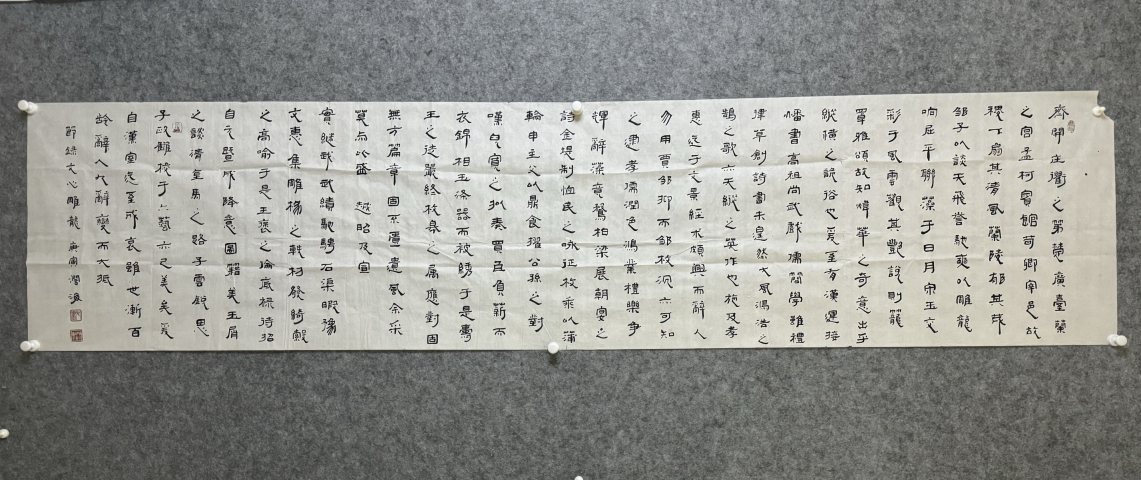 齊開莊衢之第楚廣臺蘭
之宮孟柯賓館荀卿宰邑故
稷下扇其清風蘭陵郁其茂
鄒子以談天飛譽馳奭以雕龍
响屈平聯藻于日月宋玉交
彩于風雲觀其艷說則籠
罩雅頌故知煒華之奇意出乎
縱橫之詭俗也爰至有漢運接
燔書高祖尚武戲儒簡學雖禮
律草創詩書未遑然大風鴻浩之
鵠之歌亦天縱之英作也施及孝
惠迄于文景經术頗興而辭人
勿用賈鄒抑而鄒枚沉亦可知
之逮孝儒潤色鴻業禮樂爭
輝辭藻竟騖柏梁展朝宴之
詩金堤制恤民之咏征枚乘以蒲
輪申主父以鼎食擢公孫之對
嘆倪寬之拟奏買臣負薪而
衣錦相玉滌器而被綉于是壽
王之徒嚴終枚皋之属應對固
無方篇章亦固不匱遺風余采
莫与比盛越昭及宣
實继武績馳騁石渠暇豫
文惠集雕椽之軼材發綺縠
之高喻于是王褒之倫底禄待招
自元暨成降意圖籍美玉屑
之談清皇馬之路子雲銳思
子政雠校于六藝亦已美矣爰
自漢室迄至成哀雖世漸百
龄辭人九辭變而大抵
節録文心雕龍庚寅潤海